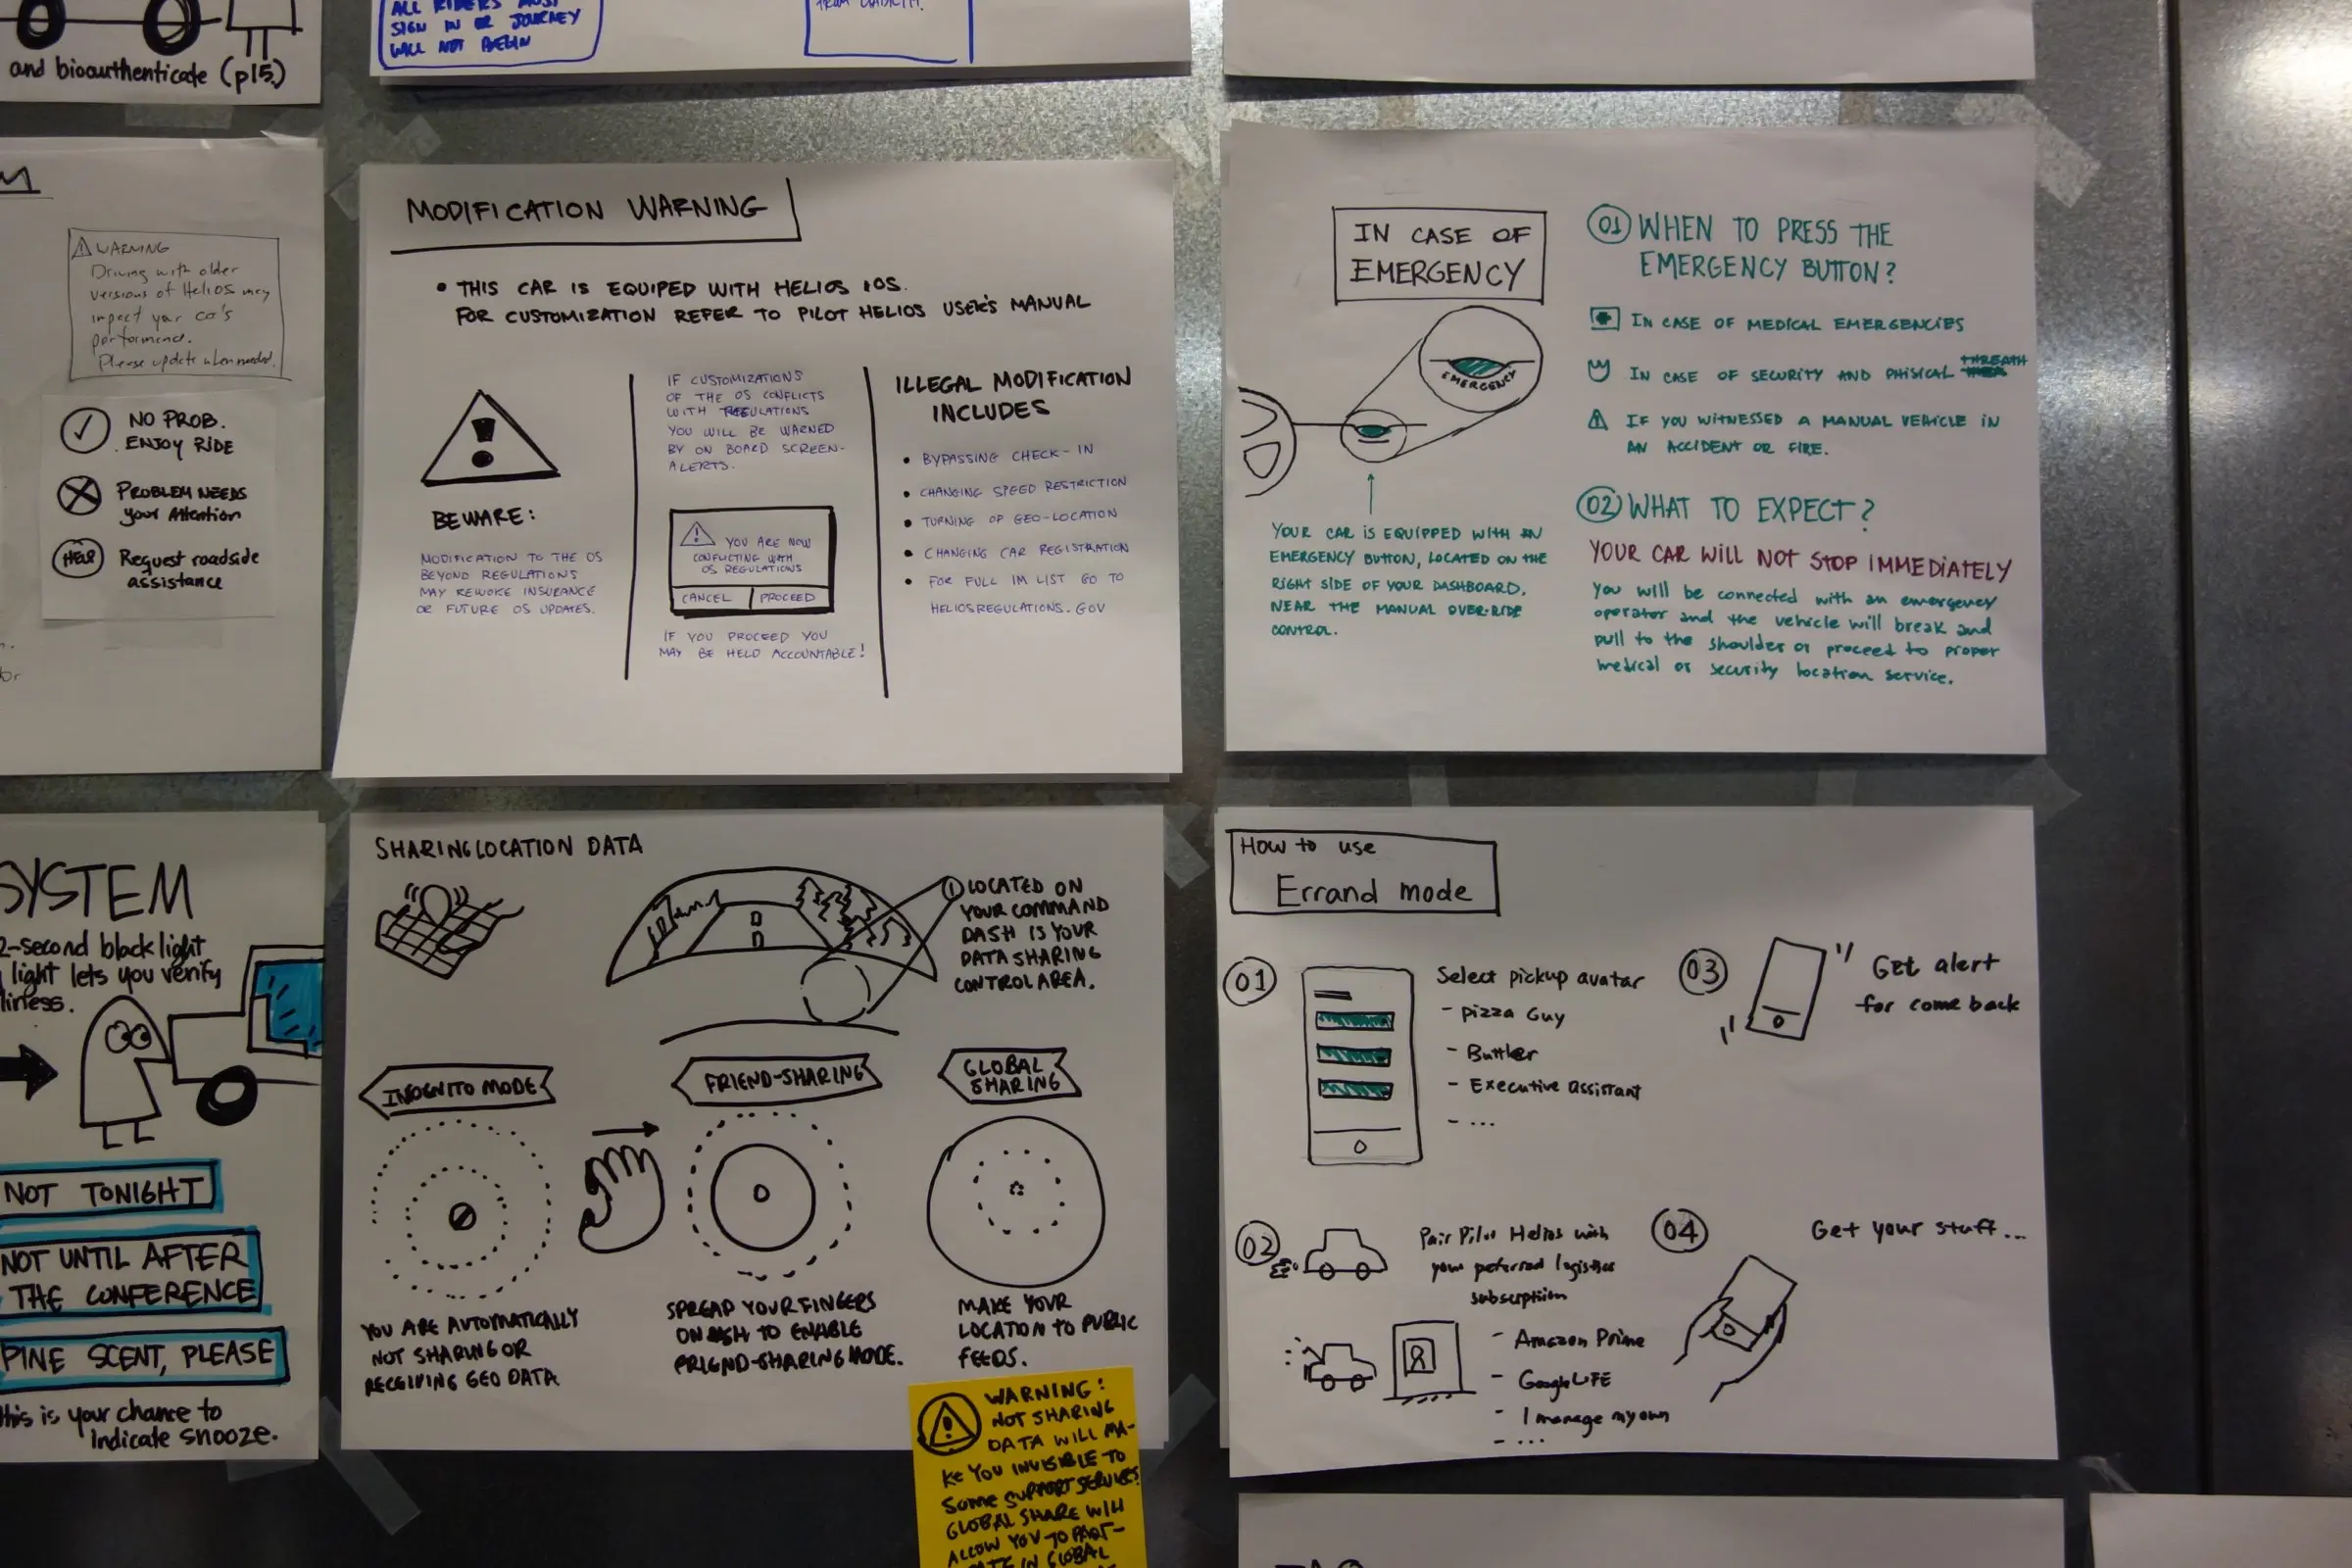 and bioauthenticate (p15.)
ALL RIDERS MUST
SIGN IN OR JOURNEY
WILL NOT BEGIN
FROM LIABILITY.
M
WARNING
Driving with older
versions of Helios may
impact your car's
performance.
Please update when needed.
NO PROB.
ENJOY RIDE
PROBLEM NEEDS
your Attention
HELP
Request roadside
assistance
MODIFICATION WARNING
• THIS CAR IS EQUIPED WITH HELIOS IOS.
FOR CUSTOMIZATION REFER TO PILOT HELIOS USER'S MANUAL
BEWARE:
MODIFICATION TO THE OS
BEYOND REGULATIONS
MAY REWOKE INSURANCE
OR FUTURE OS UPDATES.
IF CUSTOMIZATIONS
OF THE OS CONFLICTS
WITH REGULATIONS
YOU WILL BE WARNED
BY ON BOARD SCREEN-
ALERTS.
YOU ARE NOW
CONFLICTING WITH
OS REGULATIONS
CANCEL PROCEED
IF YOU PROCEED YOU
MAY BE HELD ACCOUNTABLE!
ILLEGAL MODIFICATION
INCLUDES
• BYPASSING CHECK-IN
• CHANGING SPEED RESTRICTION
• TURNING OF GEO-LOCATION
• CHANGING CAR REGISTRATION
• FOR FULL IM LIST GO TO
HELIOSREGULATIONS.GOV
IN CASE OF
EMERGENCY
EMERGENCY
YOUR CAR IS EQUIPPED WITH AN
EMERGENCY BUTTON, LOCATED ON THE
RIGHT SIDE OF YOUR DASHBOARD.
NEAR THE MANUAL OVER-RIDE
CONTROL.
01 WHEN TO PRESS THE
EMERGENCY BUTTON?
IN CASE OF MEDICAL EMERGENCIES
THREATH
IN CASE OF SECURITY AND PHISICAL
IF YOU WITNESSED A MANUAL VEHICLE IN
AN ACCIDENT OR FIRE.
02 WHAT TO EXPECT?
YOUR CAR WILL NOT STOP IMMEDIATELY
You will be connected with an emergency
operator and the vehicle will break and
pull to the shoulder or proceed to proper
medical or security location service.
SYSTEM
2-second blacklight
light lets you verify
liness.
NOT TONIGHT
NOT UNTIL AFTER
THE CONFERENCE
PINE SCENT, PLEASE
this is your chance to
indicate snooze.
SHARING LOCATION DATA
① LOCATED ON
YOUR COMMAND
DASH IS YOUR
DATA SHARING
CONTROL AREA.
INCOGNITO MODE
FRIEND-SHARING
GLOBAL
SHARING
YOU ARE AUTOMATICALLY
NOT SHARING OR
RECEIVING GEO DATA
SPREAD YOUR FINGERS
ON DASH TO ENABLE
FRIEND-SHARING MODE.
MAKE YOUR
LOCATION TO PUBLIC
FEEDS.
WARNING!
NOT SHARING
DATA WILL MA-
KE YOU INVISIBLE TO
SOME SUPPORT SERVICES.
GLOBAL SHARE WILL
ALLOW YOU TO PART-
IN GLOBAL
How to use
Errand mode
01
Select pickup avatar
- pizza Guy
- Buttler
- Executive assistant
- ...
02
Pair Pilot Helios with
your peferred logistics
subscription
- Amazon Prime
- Google LIFE
- I manage my own
- ...
03
Get alert
for come back
04
Get your stuff...